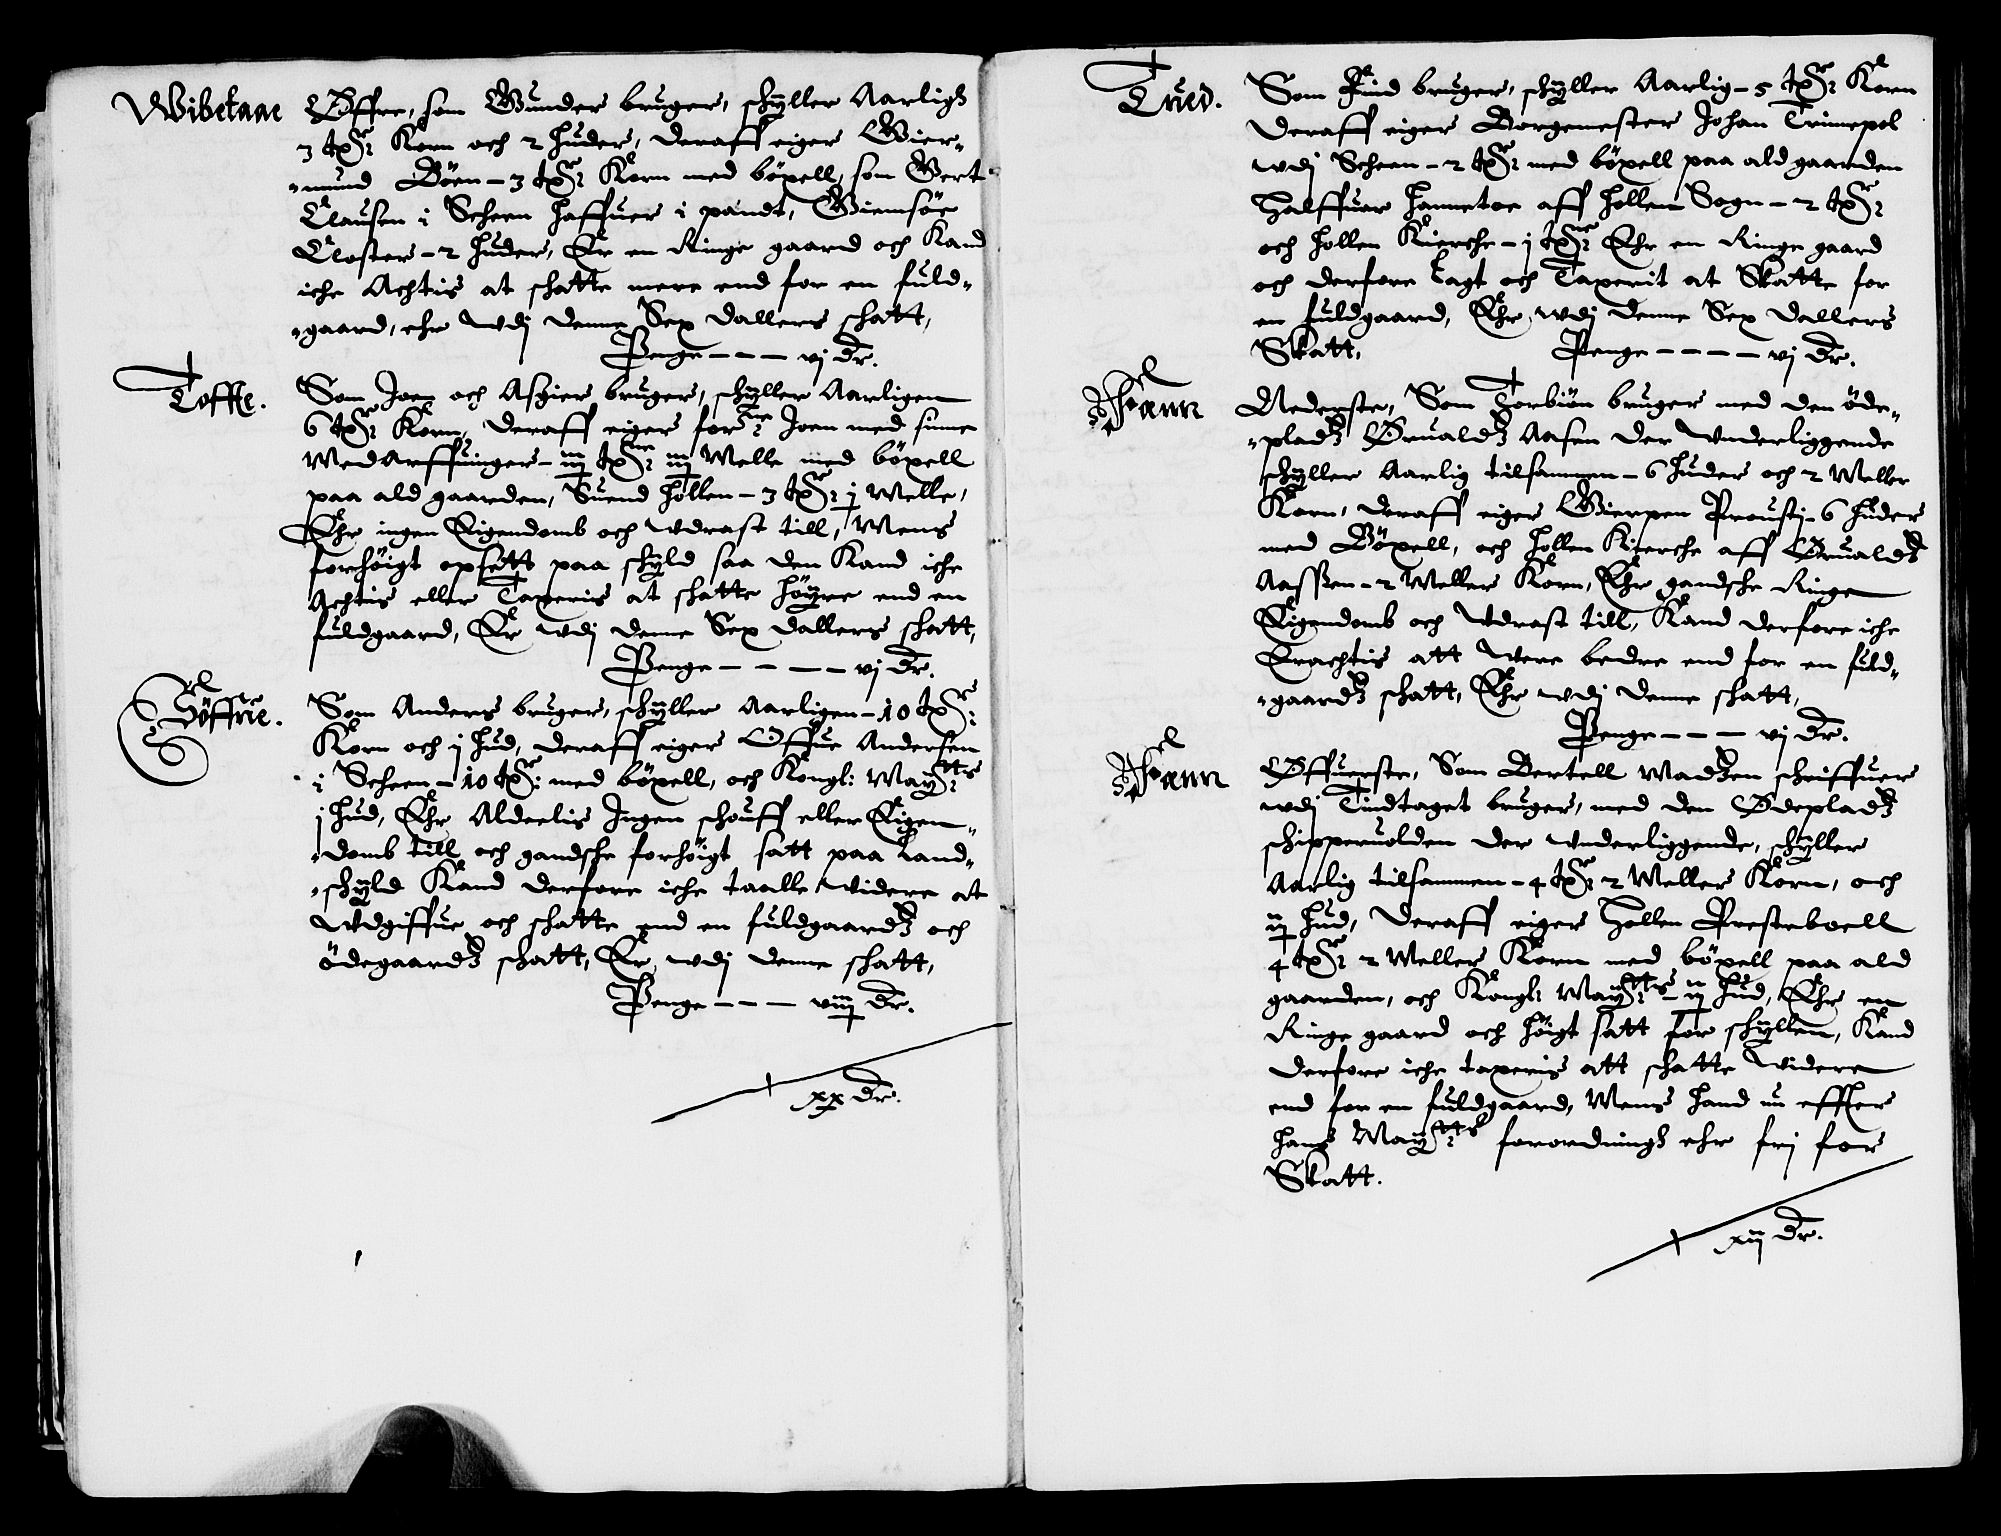 Wibetaae
Øffre, som Gunder bruger, schyller Aarligs
3 tønr: Korn och 2 huder, deraff eiger Gier-
-mund Böen - 3 tønr: Korn med böxell, som Gert
Clausen i Scheen haffuer i pandt, Giemsöe
Closter - 2 huder, Er en Ringe gaard och Kand
iche Achtis at schatte mere end for en fuld-
-gaard, ehr vdj denne Sex dallers schatt,
Penge - - - vj dr.
Toffte.
Som Joen och Asgier bruger, schyller Aarligen
6 tønr: Korn, deraff eiger forne: Joen med sinne
Medarffuinger - iij tønr: iij Melle med böxell
paa ald gaarden, Suend hollen - 3 tønr: j Melle,
Ehr ingen Eigendomb och vdrast till, Mens
forhöigt opsett paa schyld saa den Kand iche
Achtis eller Taxeris at schatte höyre end en
fuldgaard, Er vdj denne Sex dallers schatt,
Penge - - - - vj dr.
Söffrie.
Som Anders bruger, schyller Aarligen - 10 tønr:
Korn och j hud, deraff eiger Offue Andersen
i Scheen - 10 tønr: med böxell, och Kongl: Maytts:
j hud, Ehr Aldeelis Ingen schouff eller Eigen-
-domb till, och gandsche forhöigt satt paa Land-
-schyld Kand derfore iche taalle videre at
vdgiffue och schatte end en fuldgaards och
ödegaards schatt, Er vdj denne schatt,
Penge - - - viij dr.
xx dr.
Tued.
Som Find bruger, schyller Aarlig - 5 tønr: Korn
deraff eiger Borgemester Johan Trinepol
vdj Scheen - 2 tønr: med böxell paa ald gaarden
Halffuor hannetoe aff hollen Sogn - 2 tønr:
och hollen Kierche - j tønr: Ehr en Ringe gaard
och derfore Lagt och Taxerit at Skatte for
en fuldgaard, Ehr vdj denne Sex dallers
Skatt,
Penge - - - - vj dr.
Nedenste, Som Torbiön bruger med den öde-
-plads Grualds Aasen der vnderliggende
schyller Aarlig tilsammen - 6 huder och 2 Meller
Korn, deraff eiger Gierpen Prousti - 6 huder
med Böxell, och hollen Kierche aff Grualds
Aassen - 2 Meller Korn, Ehr gandsche Ringe
Eigendomb och vdrast till, Kand derfore iche
Erachtis att Were bedre end for en fuld-
-gaards schatt, Ehr vdj denne schatt,
Penge - - - vj dr.
Øffuerste, Som Bertell Madzen schriffuer
vdj Tindtaget bruger, med den Ødeplads
schipperuolden der vnderliggende, schyller
Aarlig tilsammen - 4 tønr: 2 Meller Korn, och
ij hud, deraff eiger Hollen Presteboell
4 tønr: 2 Meller Korn med böxell paa ald
gaarden, och Kongl: Maytts: - ij hud, Ehr en
Ringe gaard och höigt satt for schyllen, Kand
derfore iche taxeris att schatte videre
end for en fuldgaard, Mens hand nu effter
hans Maytts: forordnings ehr frj for
Skatt.
xij dr.